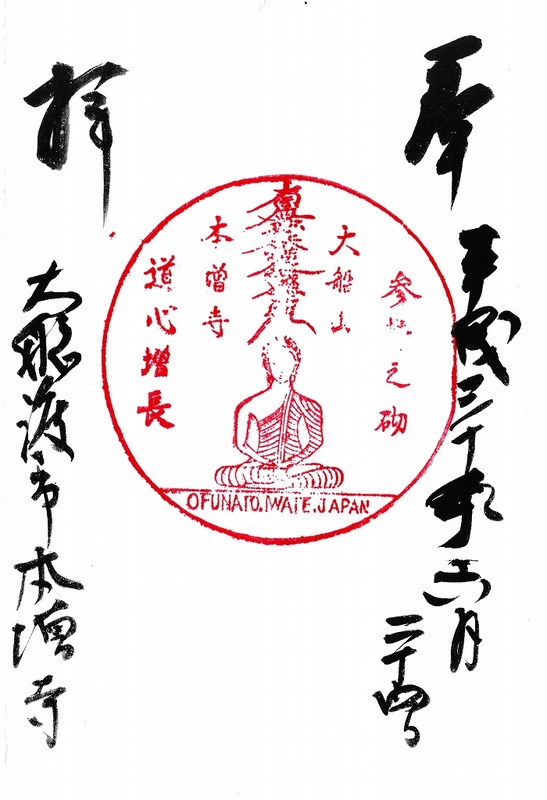 奉
平成三十年六月
二十四日
参拝之砌
大船山
南無妙法蓮華経
本増寺
道心増長
OFUNATO.IWATE.JAPAN
拝
大船渡市本増寺